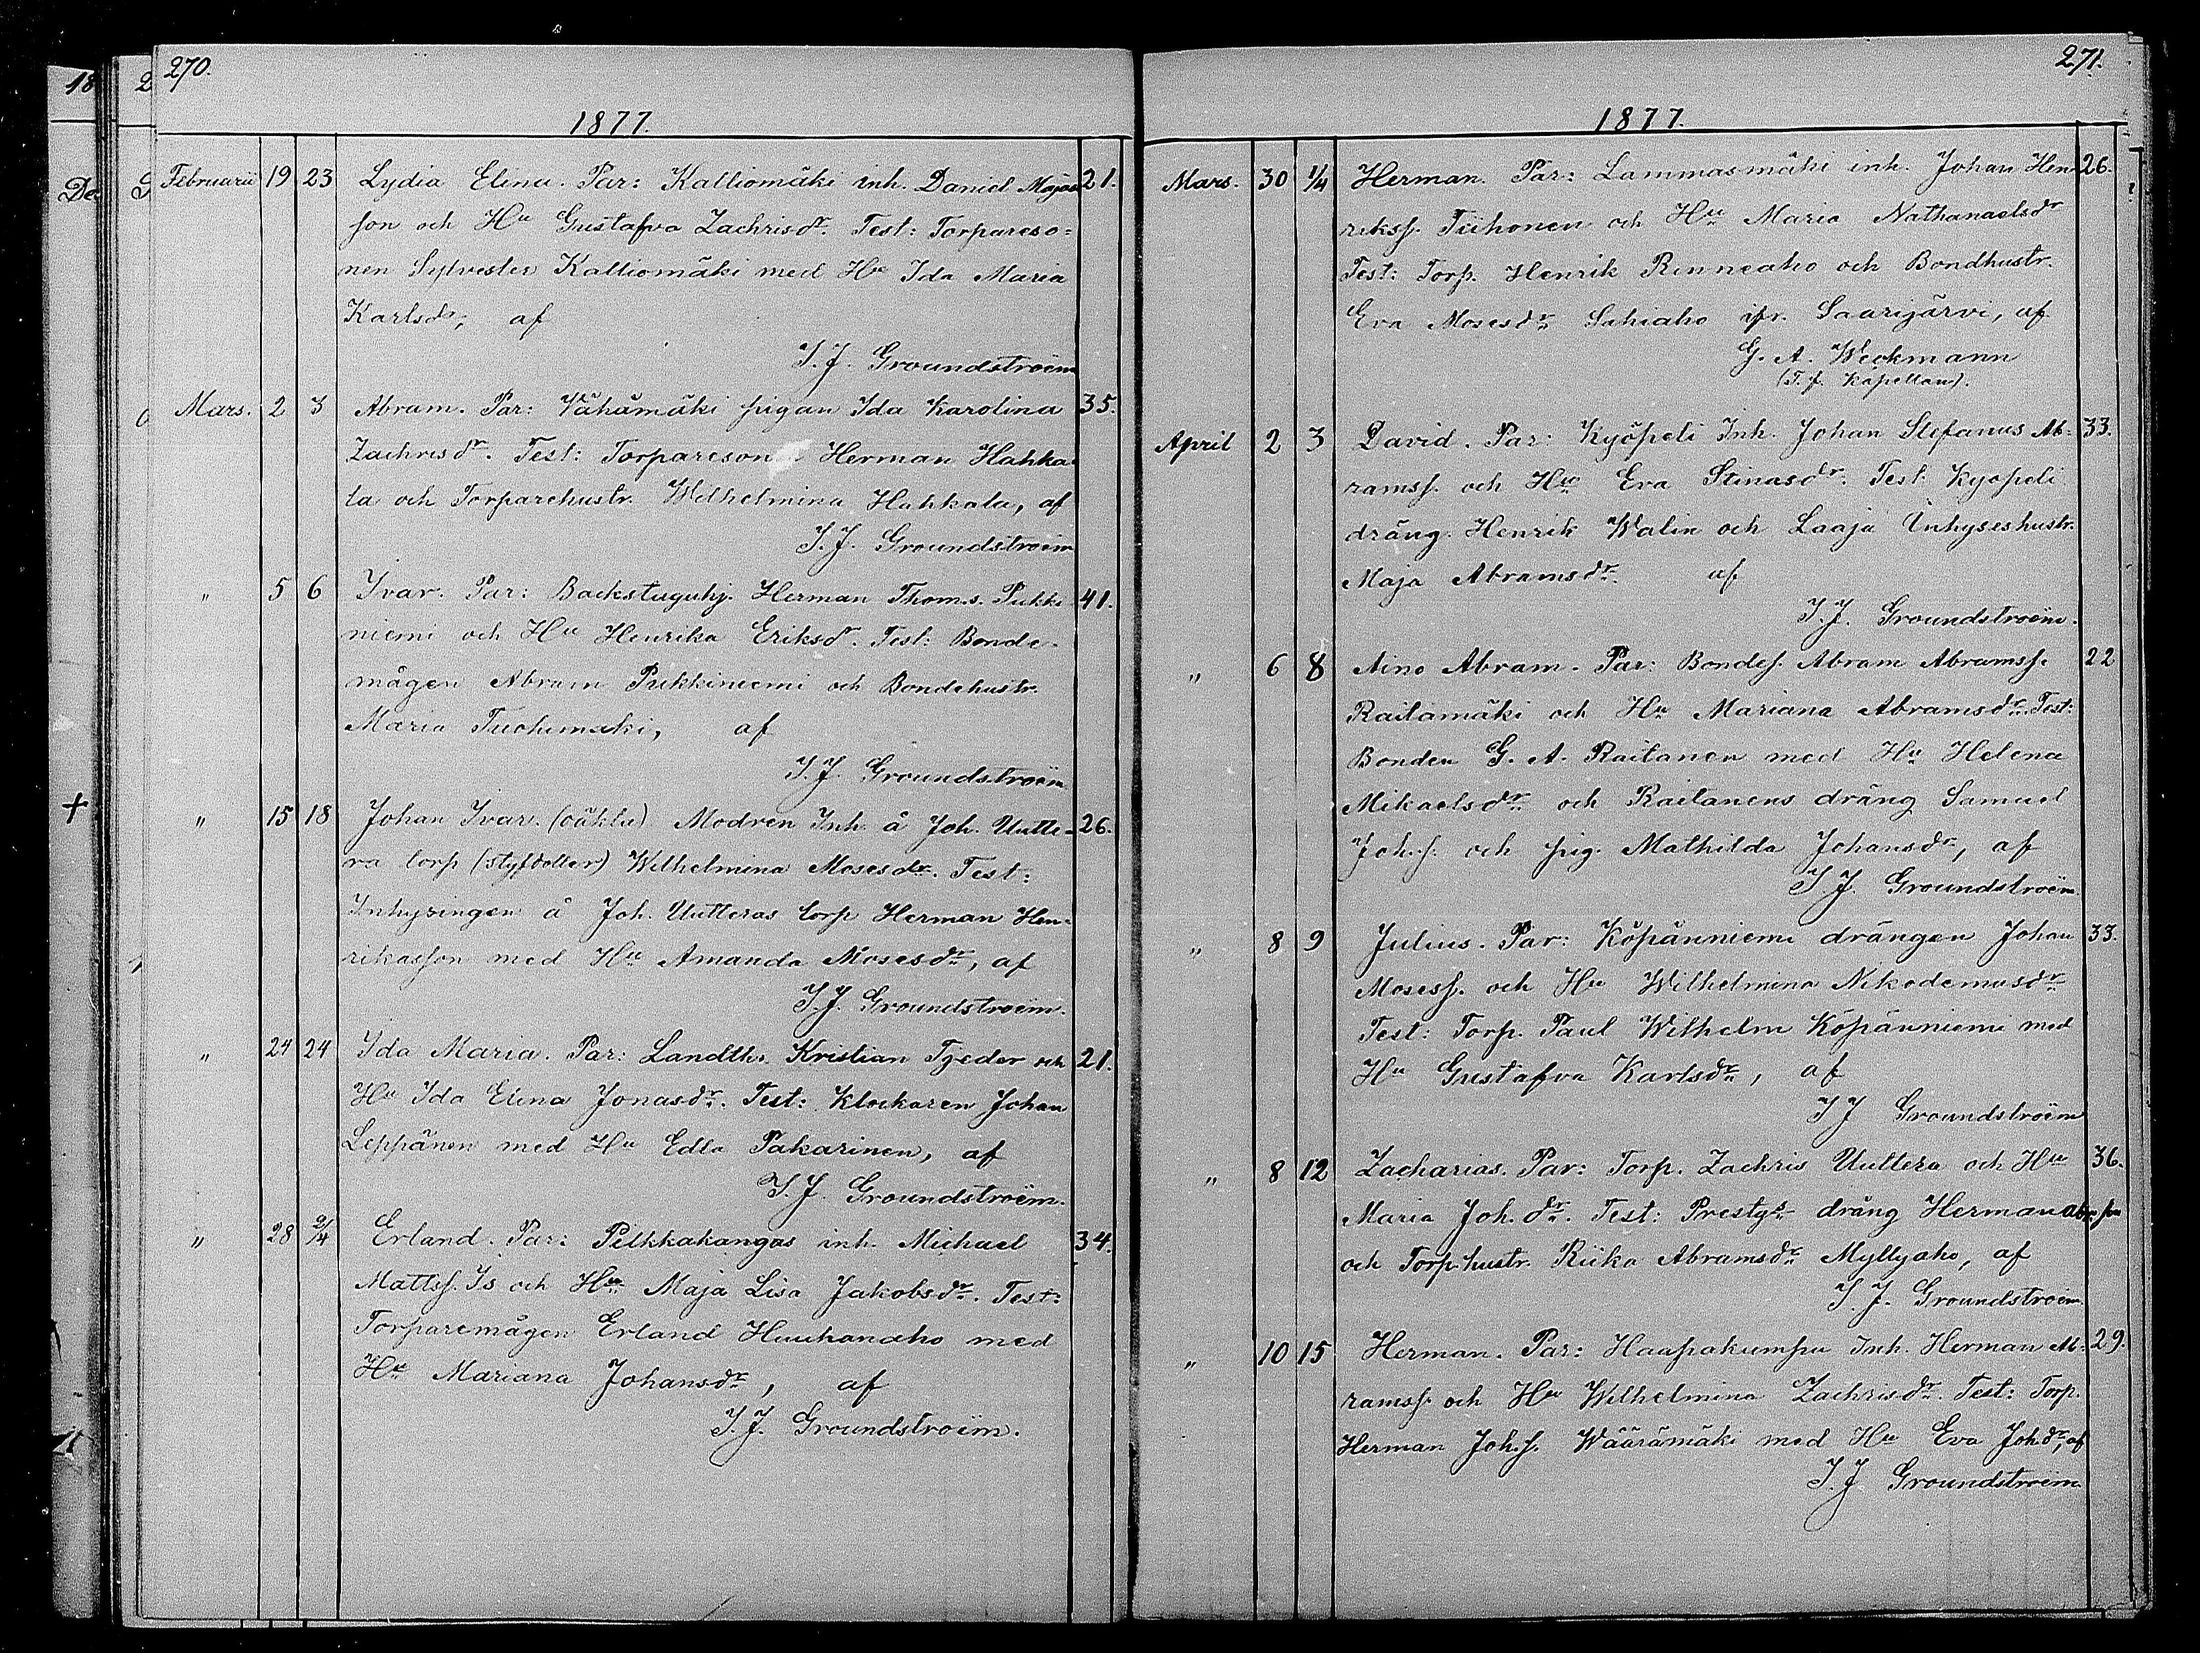 270.
1877.
Februarii 19 23 Lydia Elena. Par: Kalliomäki inh. Daniel Majas= 21.
son och Hu Gustafva Zachrisdr. Test: Torpareso=
nen Sylvester Kalliomäki med Hu Ida Maria
Karlsdr, af
I. J. Groundstroëm
Mars. 2 3 Abram. Par: Vähämäki pigan Ida Karolina 35.
Zachrisdr. Test: Torpareson Herman Hahka=
la och Torparehustr. Wilhelmina Hahkala, af
I. J. Groundstroëm
" 5 6 Ivar. Par: Backstuguhj. Herman Thom.s. Pukki 41.
niemi och Hu Henrika Eriksdr. Test: Bonde-
mågen Abram Pukkiniemi och Bondehustr.
Maria Tuohimäki, af
I. J. Groundstroëm
" 15 18 Johan Ivar. (oäkta) Modren Inh. å Joh. Uutte= 26.
ra torp (styfdotter) Wilhelmina Mosesdr. Test:
Inhysingen å Joh. Uutteras torp Herman Hen=
riksson med Hu Amanda Mosesdr, af
I. J. Groundstroëm.
" 24 24 Ida Maria. Par: Landth. Kristian Tjeder och 21.
Hu Ida Elina Jonasdr. Test: Klockaren Johan
Leppänen med Hu Edla Pakarinen, af
I. J. Groundstroëm.
" 28 2/4 Erland. Par: Pilkkakangas inh. Michael 34.
Mattsf. Is och Hu Maja Lisa Jakobsdr. Test:
Torparemågen Erland Huuhanaho med
Hu Mariana Johansdr, af
I. J. Groundstroëm.
271.
1877.
Mars. 30 1/4 Herman. Par: Lammasmäki inh. Johan Hen 26.
riksf. Tiihonen och Hu Maria Nathanaelsdr
Test: Torp. Henrik Rinneaho och Bondhustr.
Eva Mosesdr Sahiaho ifr. Saarijärvi, af
G. A. Weckmann
(T. f. Kapellan).
April 2 3 David. Par: Kyöpeli Inh. Johan Stefanus Ab- 33.
ramsf. och Hu Eva Stinasdr. Test: Kyöpeli
dräng. Henrik Walin och Laaja Inhyseshustr.
Maja Abramsdr. af
I. J. Groundstroëm.
" 6 8 Aino Abram. Par: Bondes. Abram Abramsf. 22
Raitamäki och Hu Mariana Abramsdr. Test:
Bonden G. A. Raitanen med Hu Helena
Mikaelsdr. och Raitanens dräng Samuel
Joh.f. och pig. Mathilda Johansdr, af
I. J. Groundstroëm
" 8 9 Julius. Par: Köpänniemi drängen Johan 33.
Mosesf. och Hu Wilhelmina Nikodemusdr
Test: Torp. Paul Wilhelm Köpänniemi med
Hu Gustafva Karlsdr, af
I J Groundstroëm
" 8 12 Zacharias. Par: Torp. Zachris Uuttera och Hu 36.
Maria Joh.dr. Test: Prestgs dräng Herman
och Torp.hustr. Riika Abramsdr Myllyaho, af
I. J. Groundstroëm.
" 10 15 Herman. Par: Haapakumpu Inh. Herman Ab- 29.
ramsf. och Hu Wilhelmina Zachrisdr. Test: Torp.
Herman Joh.f. Wäärämäki med Hu Eva Joh.dr, af
I. J Groundstroëm